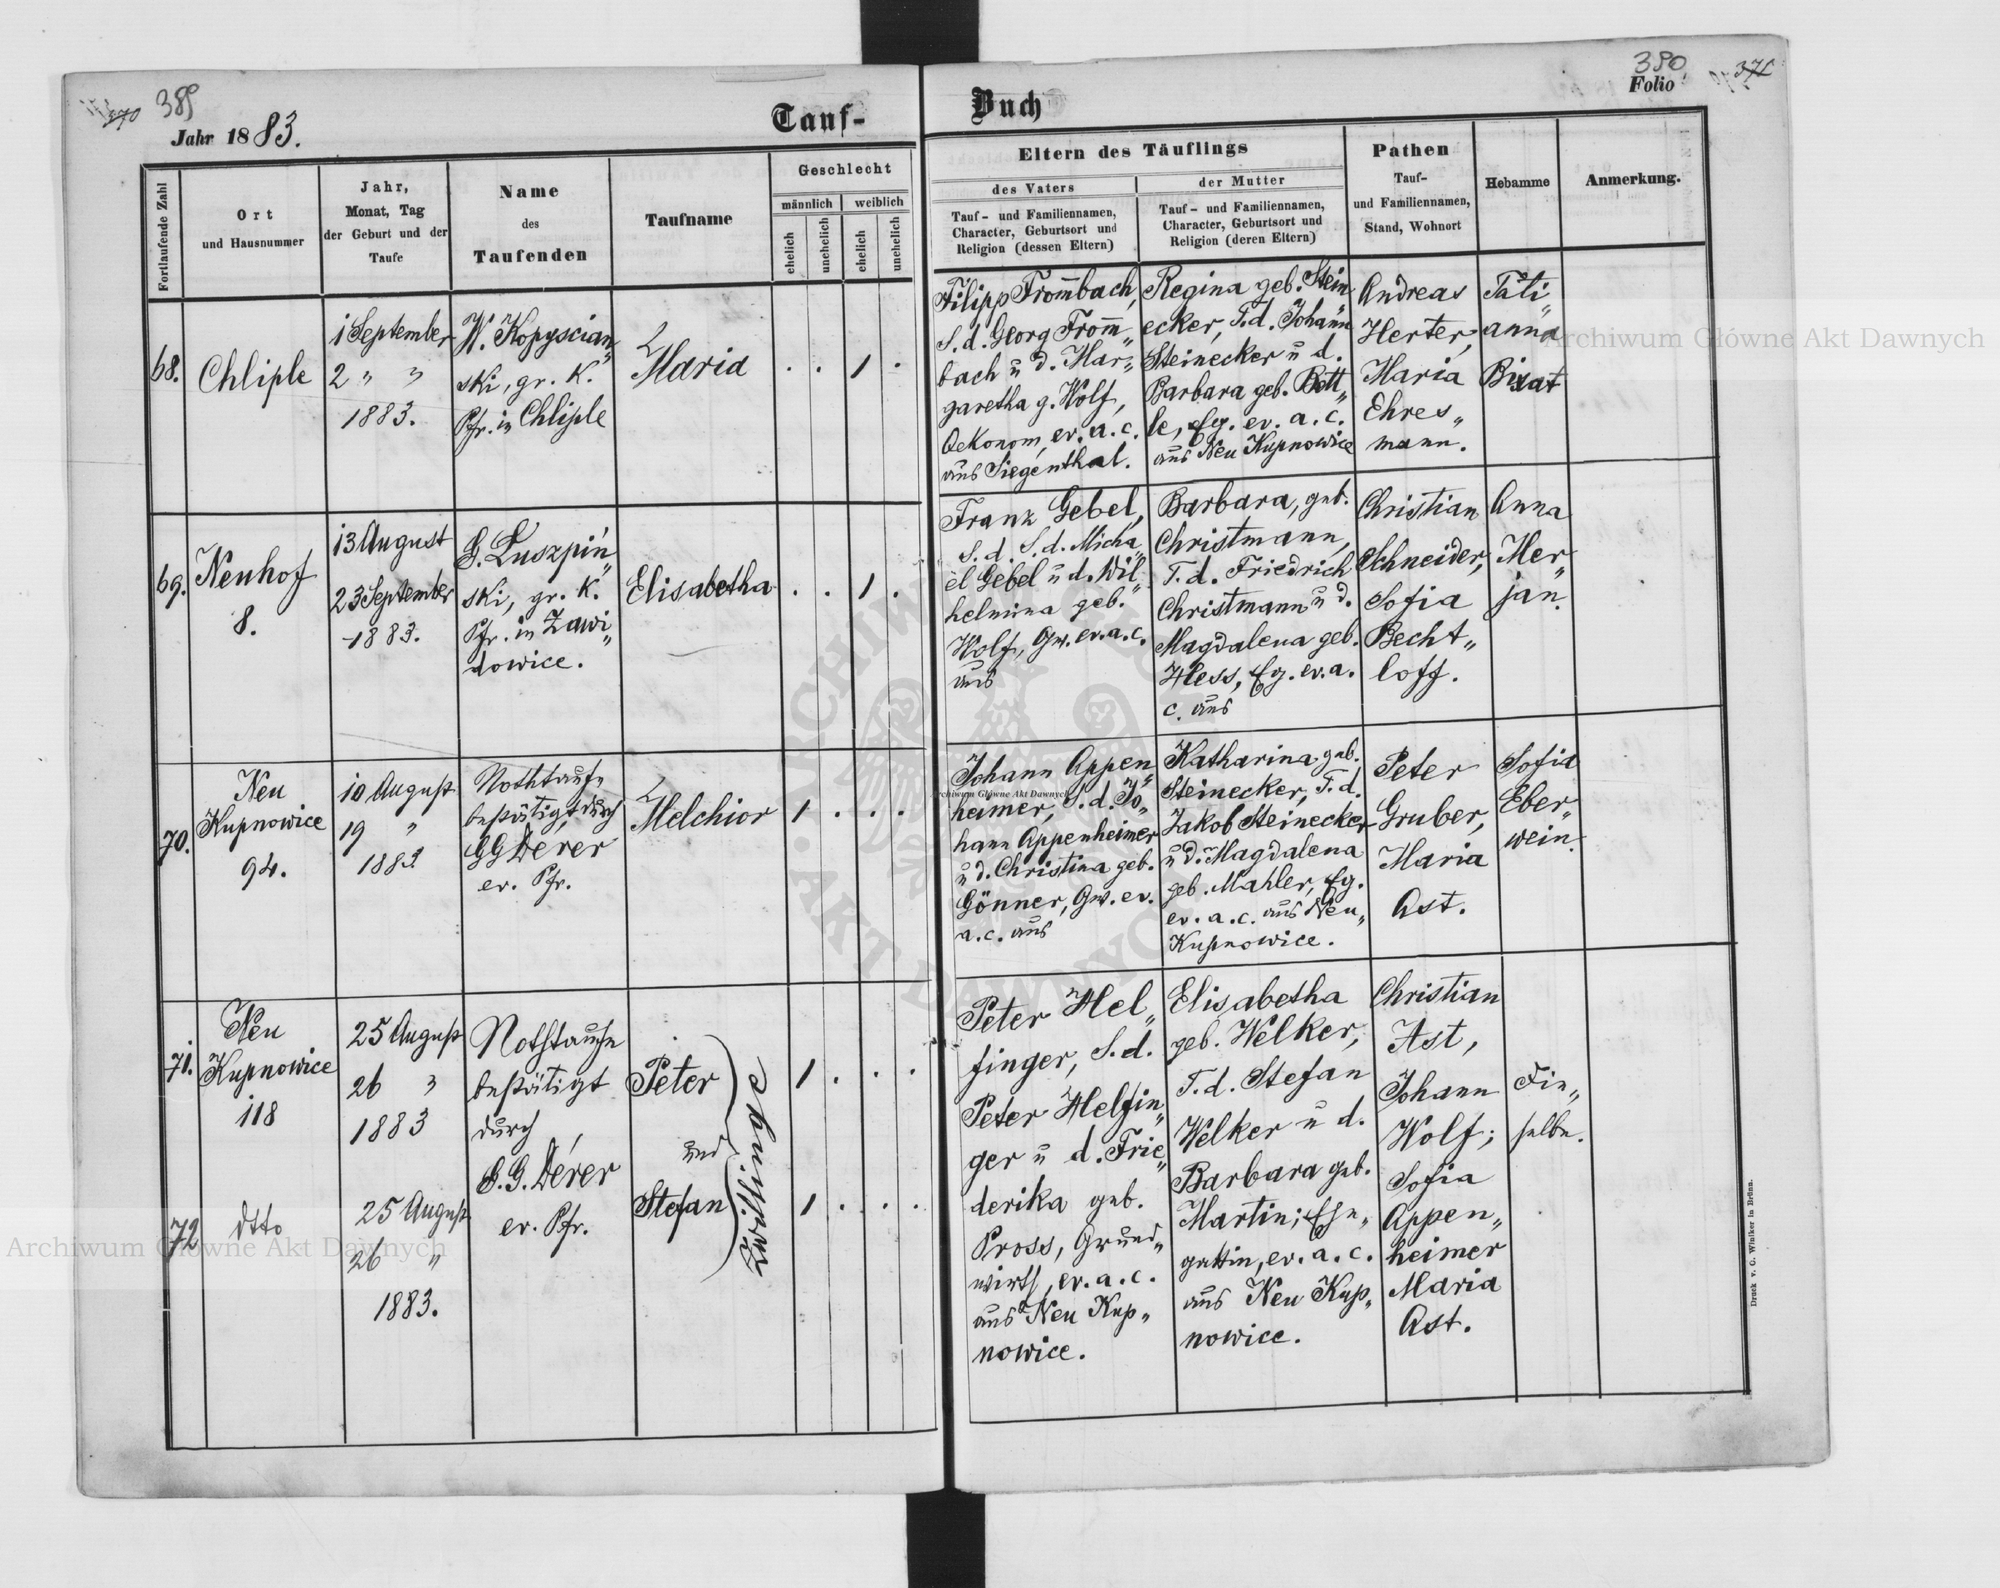 389
370
Jahr 1883.
Tauf-
Buch
380
371
Folio
Fortlaufende Zahl
Ort
und Hausnummer
Jahr,
Monat, Tag
der Geburt und der
Taufe
Name
des
Taufenden
Taufname
Geschlecht
männlich
weiblich
ehelich
unehelich
ehelich
unehelich
Eltern des Täuflings
des Vaters
Tauf- und Familiennamen,
Character, Geburtsort und
Religion (dessen Eltern)
der Mutter
Tauf- und Familiennamen,
Character, Geburtsort und
Religion (deren Eltern)
Pathen
Tauf-
und Familiennamen,
Stand, Wohnort
Hebamme
Anmerkung.
68.
Chliple
1 September
2 " "
1883.
W. Kopyscian„
ski, gr. K.
Pfr. in Chliple
Maria
. . 1 .
Filipp Frombach,
S. d. Georg From„
bach u d. Mar„
garetha g. Wolf,
Oekonom, ev. a. c.
aus Siegenthal.
Regina geb. Stein„
ecker, T. d. Johann
Steinecker u d.
Barbara geb. Bott„
le, Eg. ev. a. c.
aus Neu Kupnowice
Andreas
Herter,
Maria
Ehres„
mann.
Tati„
anna
Bixat
69.
Neuhof
8.
13 August
23 September
1883.
G. Luszpiń„
ski, gr. K.
Pfr. in Zawi„
dowice.
Elisabetha
. . 1 .
Franz Gebel,
S. d. S. d. Micha„
el Gebel u d. Wil„
helmina geb.
Wolf, Gw. ev. a. c.
aus
Barbara, geb.
Christmann,
T. d. Friedrich
Christmann u d.
Magdalena geb.
Hess, Eg. ev. a.
c. aus
Christian
Schneider,
Sofia
Becht„
loff.
Anna
Her„
jan.
70.
Neu
Kupnowice
94.
10 August
19 "
1883
Nothtaufe
bestätigt durch
G G Derer
ev. Pfr.
Melchior
1 . . .
Johann Appen„
heimer, S. d. Jo„
hann Appenheimer
u d. Christina geb.
Gönner, Gw. ev.
a. c. aus
Katharina geb.
Steinecker, T. d.
Jakob Steinecker
u d. Magdalena
geb. Mahler, Eg.
ev. a. c. aus Neu„
Kupnowice.
Peter
Gruber,
Maria
Ast.
Sofia
Eber„
wein.
71.
Neu
Kupnowice
118
25 August
26 "
1883
Nothtaufe
bestätigt
durch
G. G. Dérer
ev. Pfr.
Peter
und
Stefan
Zwillinge
1 . . .
Peter Hel„
finger, S. d.
Peter Helfin„
ger u d. Frie„
derika geb.
Pross, Grund„
wirth, ev. a. c.
aus Neu Kup„
nowice.
Elisabetha
geb. Welker,
T. d. Stefan
Welker u d.
Barbara geb.
Martin; Ehe„
gattin, ev. a. c.
aus Neu Kup„
nowice.
Christian
Ast,
Johann
Wolf;
Sofia
Appen„
heimer
Maria
Ast.
Die„
selbe.
72
dtto
25 August
26 "
1883.
1 . . .
Druck v. C. Winiker in Brünn.
Archiwum Główne Akt Dawnych
Archiwum Główne Akt Dawnych
Archiwum Główne Akt Dawnych
ARCHIWUM GŁÓWNE · AKT DAWNYCH ·